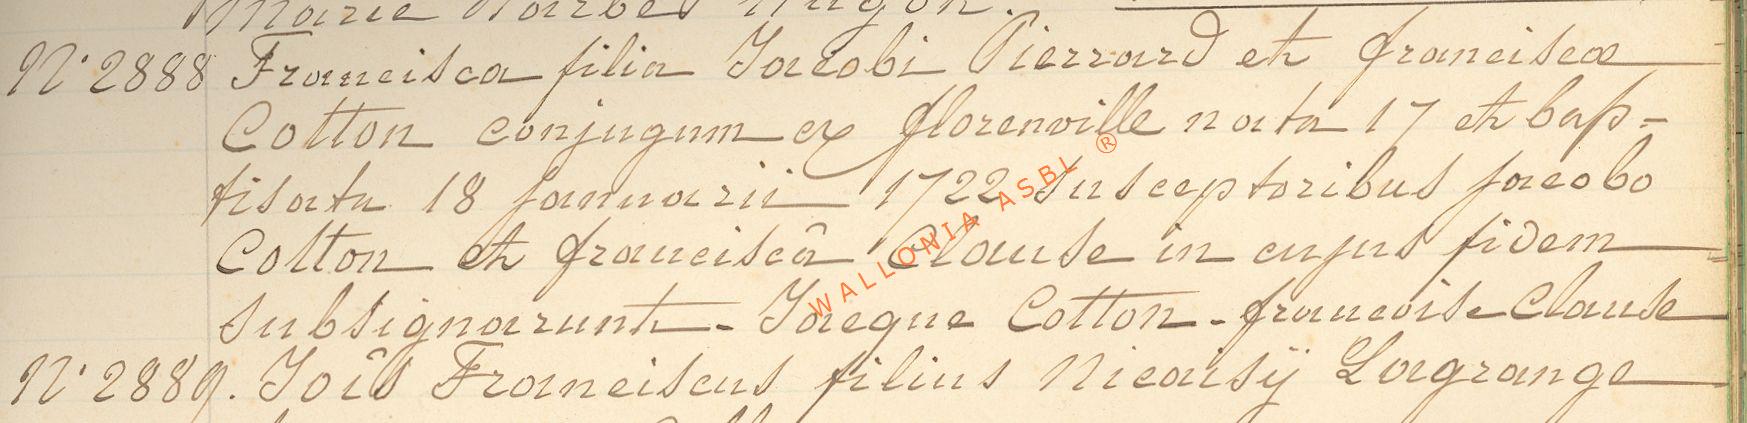 Marie Barbe Hugon.
N° 2888 Francisca filia Jacobi Pierrard et franciscæ
Cotton conjugum ex florenville nata 17 et bap=
tisata 18 januarii 1722 susceptoribus jacobo
Cotton et franciscâ Clause in cujus fidem
subsignarunt - Jacque Cotton - francoise Clause
N° 2889. Joês Franciscus filius Nicaisÿ Lagrange
WALLONIA ASBL ®